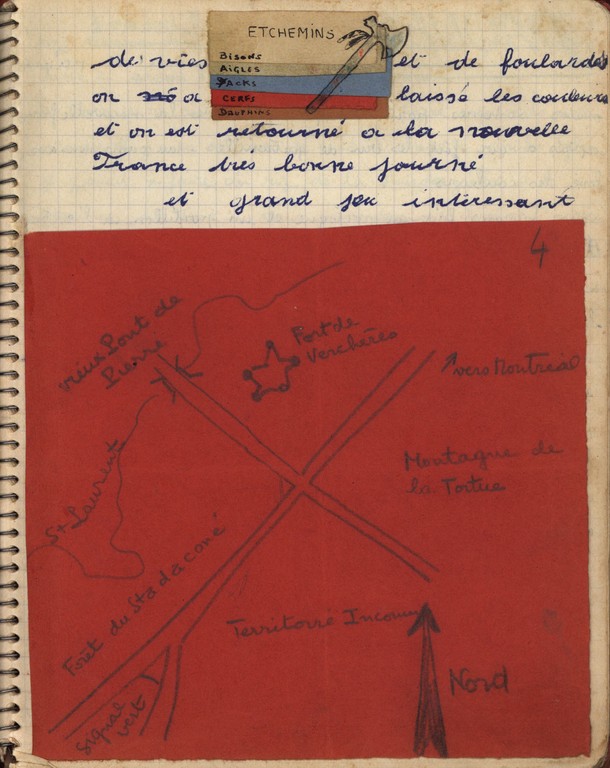 ETCHEMINS
BISONS
AIGLES
JACKS
CERFS
DAUPHINS
de vies et de foulards
on a laissé les couleurs
et on est retourné a la nouvelle
France très bonne journé
et grand jeu intéressant
4
vieux Pont de
Pierre
Fort de
Verchères
vers Montréal
Montagne de
la Tortue
St Laurent
Forêt du Stadaconé
Territorré Inconnu
signal
vert
Nord